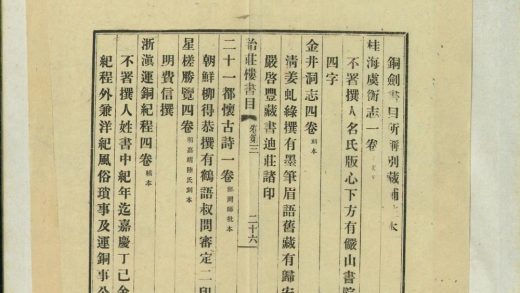 銅劍書目所
桂海虞衡志一卷
不署撰人名氏版心下方有儼山書院
四字
金井洞志四卷 刻本
清姜虬綠撰有墨筆眉語舊藏有歸安
嚴啓豐藏書迪莊諸印
詒莊樓書目 卷三 二十六
二十一都懷古詩一卷
朝鮮柳得恭撰有鶴語叔問審定二印
星槎勝覽四卷 明嘉靖陸氏刻本
明費信撰
浙滇運銅紀程四卷 稿本
不署撰人姓書中紀年迄嘉慶丁己
紀程外兼洋紀風俗瑣事及運銅事